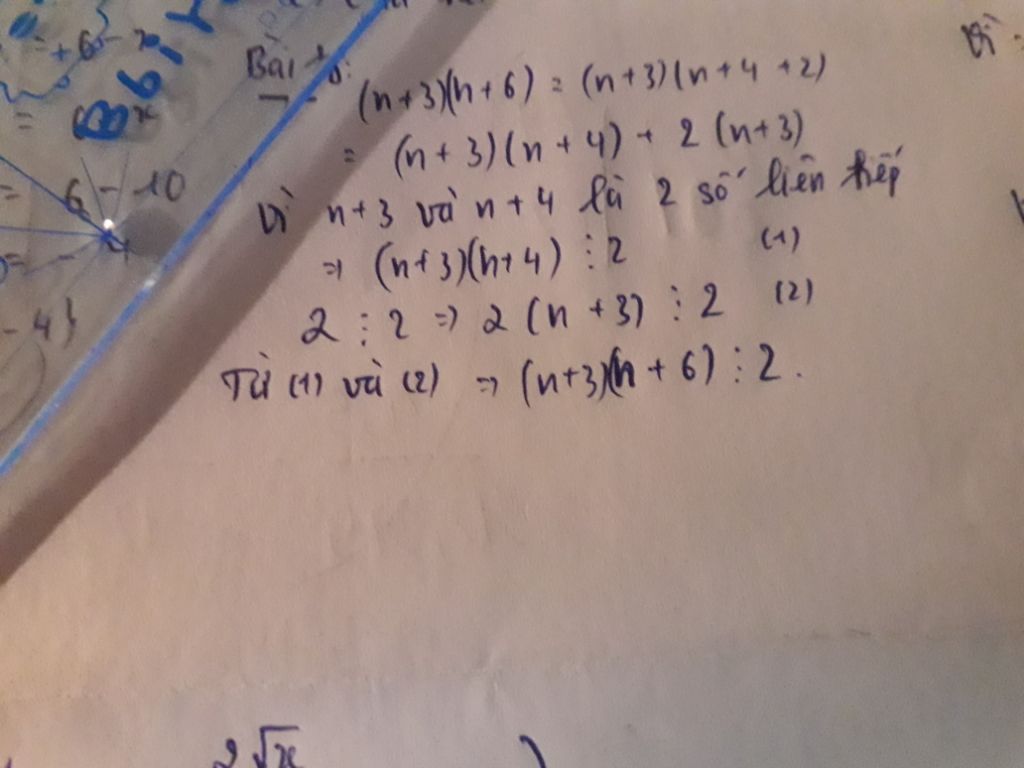 = + 6 - x
B
6 - 10
- 4}
Bài
(n+3)(n+6) = (n+3)(n+4+2)
= (n+3)(n+4) + 2(n+3)
Vì n+3 và n+4 là 2 số liên tiếp
⇒ (n+3)(n+4) ⋮ 2 (1)
2 ⋮ 2 ⇒ 2(n+3) ⋮ 2 (2)
Từ (1) và (2) ⇒ (n+3)(n+6) ⋮ 2.
Vì
2√x )